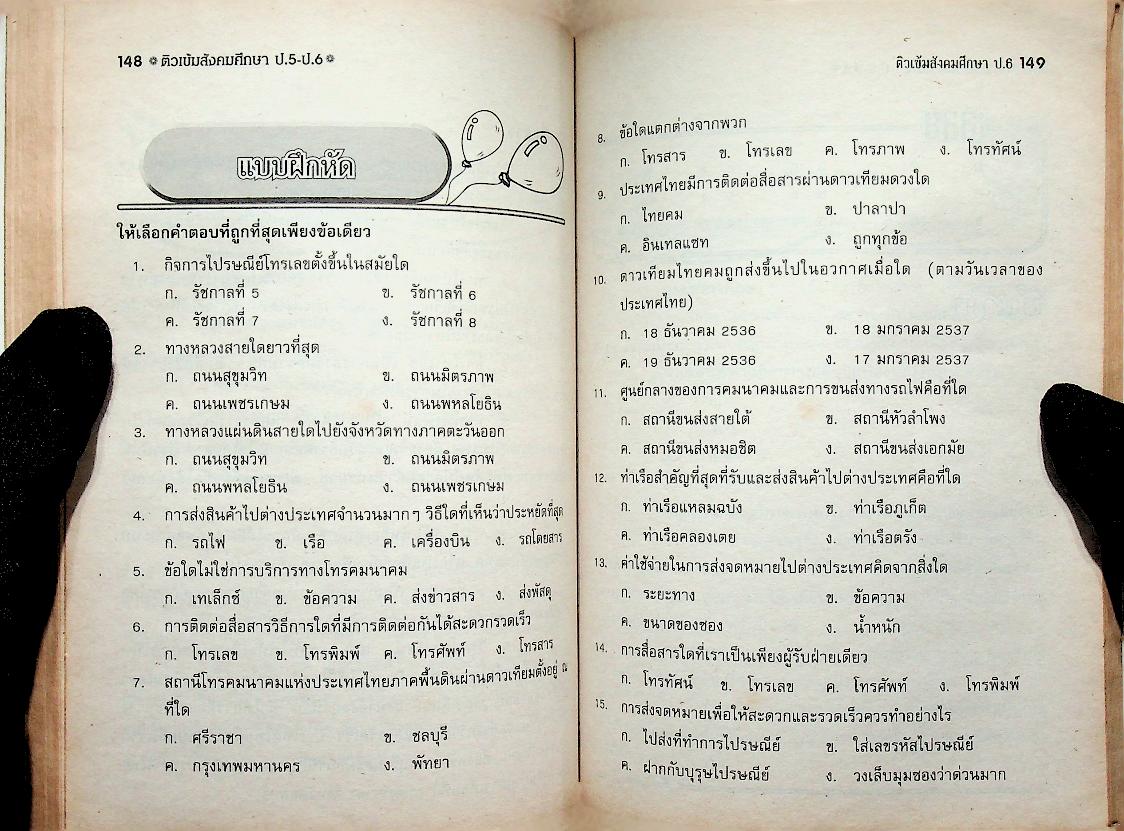 148 ❋ ติวเข้มสังคมศึกษา ป.5-ป.6 ❋
แบบฝึกหัด
ให้เลือกคำตอบที่ถูกที่สุดเพียงข้อเดียว
1. กิจการไปรษณีย์โทรเลขตั้งขึ้นในสมัยใด
ก. รัชกาลที่ 5 ข. รัชกาลที่ 6
ค. รัชกาลที่ 7 ง. รัชกาลที่ 8
2. ทางหลวงสายใดยาวที่สุด
ก. ถนนสุขุมวิท ข. ถนนมิตรภาพ
ค. ถนนเพชรเกษม ง. ถนนพหลโยธิน
3. ทางหลวงแผ่นดินสายใดไปยังจังหวัดทางภาคตะวันออก
ก. ถนนสุขุมวิท ข. ถนนมิตรภาพ
ค. ถนนพหลโยธิน ง. ถนนเพชรเกษม
4. การส่งสินค้าไปต่างประเทศจำนวนมากๆ วิธีใดที่เห็นว่าประหยัดที่สุด
ก. รถไฟ ข. เรือ ค. เครื่องบิน ง. รถโดยสาร
5. ข้อใดไม่ใช่การบริการทางโทรคมนาคม
ก. เทเล็กซ์ ข. ข้อความ ค. ส่งข่าวสาร ง. ส่งพัสดุ
6. การติดต่อสื่อสารวิธีการใดที่มีการติดต่อกันได้สะดวกรวดเร็ว
ก. โทรเลข ข. โทรพิมพ์ ค. โทรศัพท์ ง. โทรสาร
7. สถานีโทรคมนาคมแห่งประเทศไทยภาคพื้นดินผ่านดาวเทียมตั้งอยู่ ณ
ที่ใด
ก. ศรีราชา ข. ชลบุรี
ค. กรุงเทพมหานคร ง. พัทยา
ติวเข้มสังคมศึกษา ป.6 149
8. ข้อใดแตกต่างจากพวก
ก. โทรสาร ข. โทรเลข ค. โทรภาพ ง. โทรทัศน์
9. ประเทศไทยมีการติดต่อสื่อสารผ่านดาวเทียมดวงใด
ก. ไทยคม ข. ปาลาปา
ค. อินเทลแซท ง. ถูกทุกข้อ
10. ดาวเทียมไทยคมถูกส่งขึ้นไปในอวกาศเมื่อใด (ตามวันเวลาของ
ประเทศไทย)
ก. 18 ธันวาคม 2536 ข. 18 มกราคม 2537
ค. 19 ธันวาคม 2536 ง. 17 มกราคม 2537
11. ศูนย์กลางของการคมนาคมและการขนส่งทางรถไฟคือที่ใด
ก. สถานีขนส่งสายใต้ ข. สถานีหัวลำโพง
ค. สถานีขนส่งหมอชิต ง. สถานีขนส่งเอกมัย
12. ท่าเรือสำคัญที่สุดที่รับและส่งสินค้าไปต่างประเทศคือที่ใด
ก. ท่าเรือแหลมฉบัง ข. ท่าเรือภูเก็ต
ค. ท่าเรือคลองเตย ง. ท่าเรือตรัง
13. ค่าใช้จ่ายในการส่งจดหมายไปต่างประเทศคิดจากสิ่งใด
ก. ระยะทาง ข. ข้อความ
ค. ขนาดของซอง ง. น้ำหนัก
14. การสื่อสารใดที่เราเป็นเพียงผู้รับฝ่ายเดียว
ก. โทรทัศน์ ข. โทรเลข ค. โทรศัพท์ ง. โทรพิมพ์
15. การส่งจดหมายเพื่อให้สะดวกและรวดเร็วควรทำอย่างไร
ก. ไปส่งที่ทำการไปรษณีย์ ข. ใส่เลขรหัสไปรษณีย์
ค. ฝากกับบุรุษไปรษณีย์ ง. วงเล็บมุมซองว่าด่วนมาก